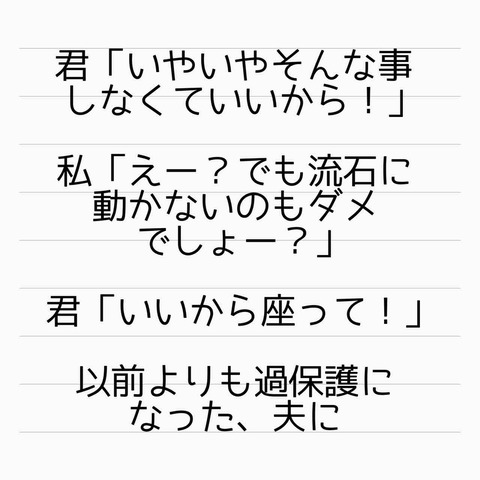 君「いやいやそんな事
しなくていいから！」
私「えー？でも流石に
動かないのもダメ
でしょー？」
君「いいから座って！」
以前よりも過保護に
なった、夫に